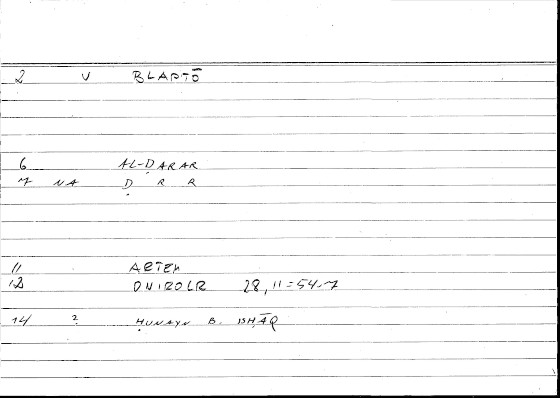 2 V BLAPTŌ
6 AL-ḌARAR
7 NA Ḍ R R
11 ARTEM
12 ONIROCR 28,11=54,7
14 2 ḤUNAYN B. ISḤĀQ